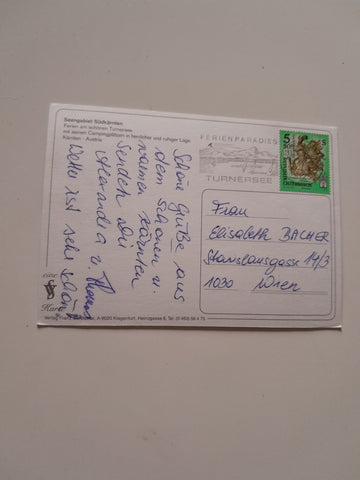 Seengebiet Südkärnten
Ferien am schönen Turnersee
mit seinen Campingplätzen in herrlicher und ruhiger Lage
Kärnten - Austria
FERIENPARADIES
TURNERSEE
5 S
Schöne Grüße aus
dem schönen u.
warmen Kärnten
senden Dir
Alexandra u.
Wetter ist sehr schön
eine
Karte
Frau
Elisabeth BACHER
Stanislausgasse 14/3
1030 Wien
Verlag Franz A-9020 Klagenfurt, Heinzgasse 6, Tel.